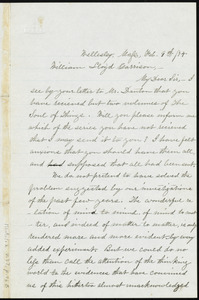 Wellesley, Mass, Feb. 9th/78
William Lloyd Garrison,
My Dear Sir,- I
see by your letter to Mr. Denton that you
have received but two volumes of The
Soul of Things. Will you please inform me
which of the series you have not received
that I may send it to you? I have felt
anxious that you should have them all,
and had supposed that all had been sent.
We do not pretend to have solved the
problem suggested by our investigations
of the past four years. The wonderful re-
lation of mind to mind, of mind to mat-
ter, and indeed of matter to matter, is only
rendered more and more evident by every
added experiment. But we could do no
less than call the attention of the thinking
world to the evidences that have convinced
us of this hitherto almost unacknowledged